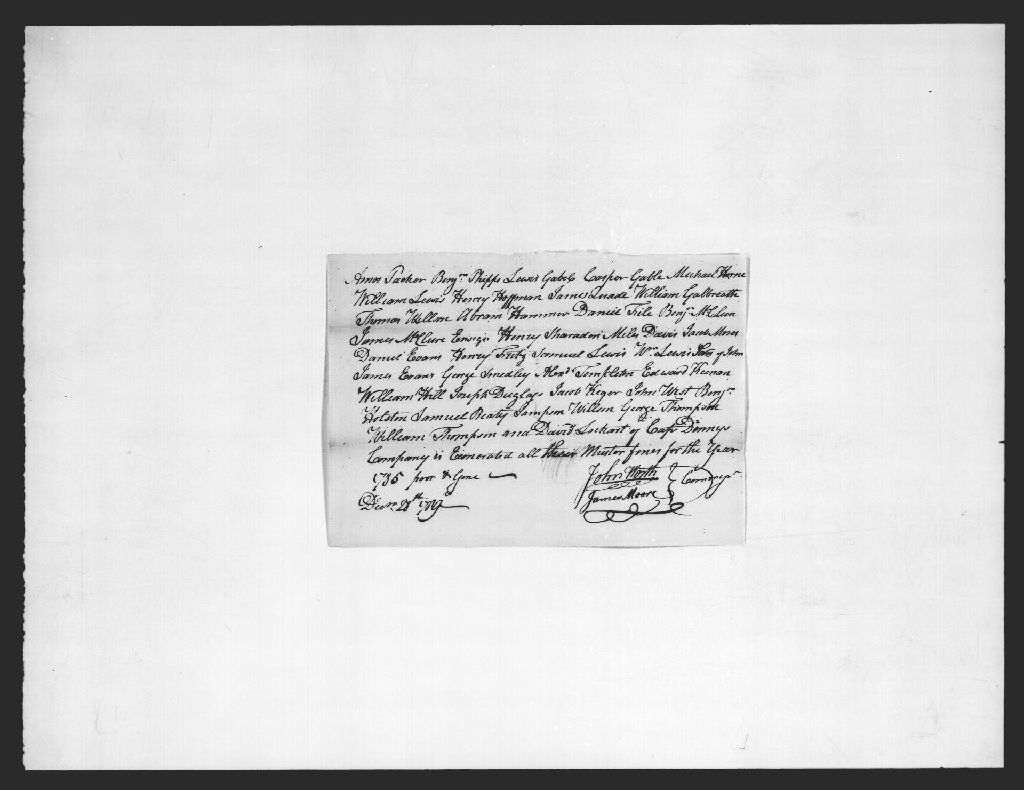 Amos Packer Benjn Phipps Lewis Gable Casper Gable Michael Horne
William Lewis Henry Hoffman James Quade William Galbreath
Thomas Wilson Abram Hammer Daniel Benjn McClure
James McClure Ensign Henry Sharadin Miles Davis Jacob Moses
Daniel Evans Henry Fritz Samuel Lewis Wm Lewis Son of John
James Evans George Smedley Alexdr Templeton Edward Keenan
William Hill Joseph Duglass Jacob Keger John West Benjn
Holston Samuel Beaty Sampson Willson George Thompson
William Thompson and David Lockart of Capt Dennys
Company is Exonerated all their Muster fines for the Year
1785 poor & Gone
John Worth
James Moore